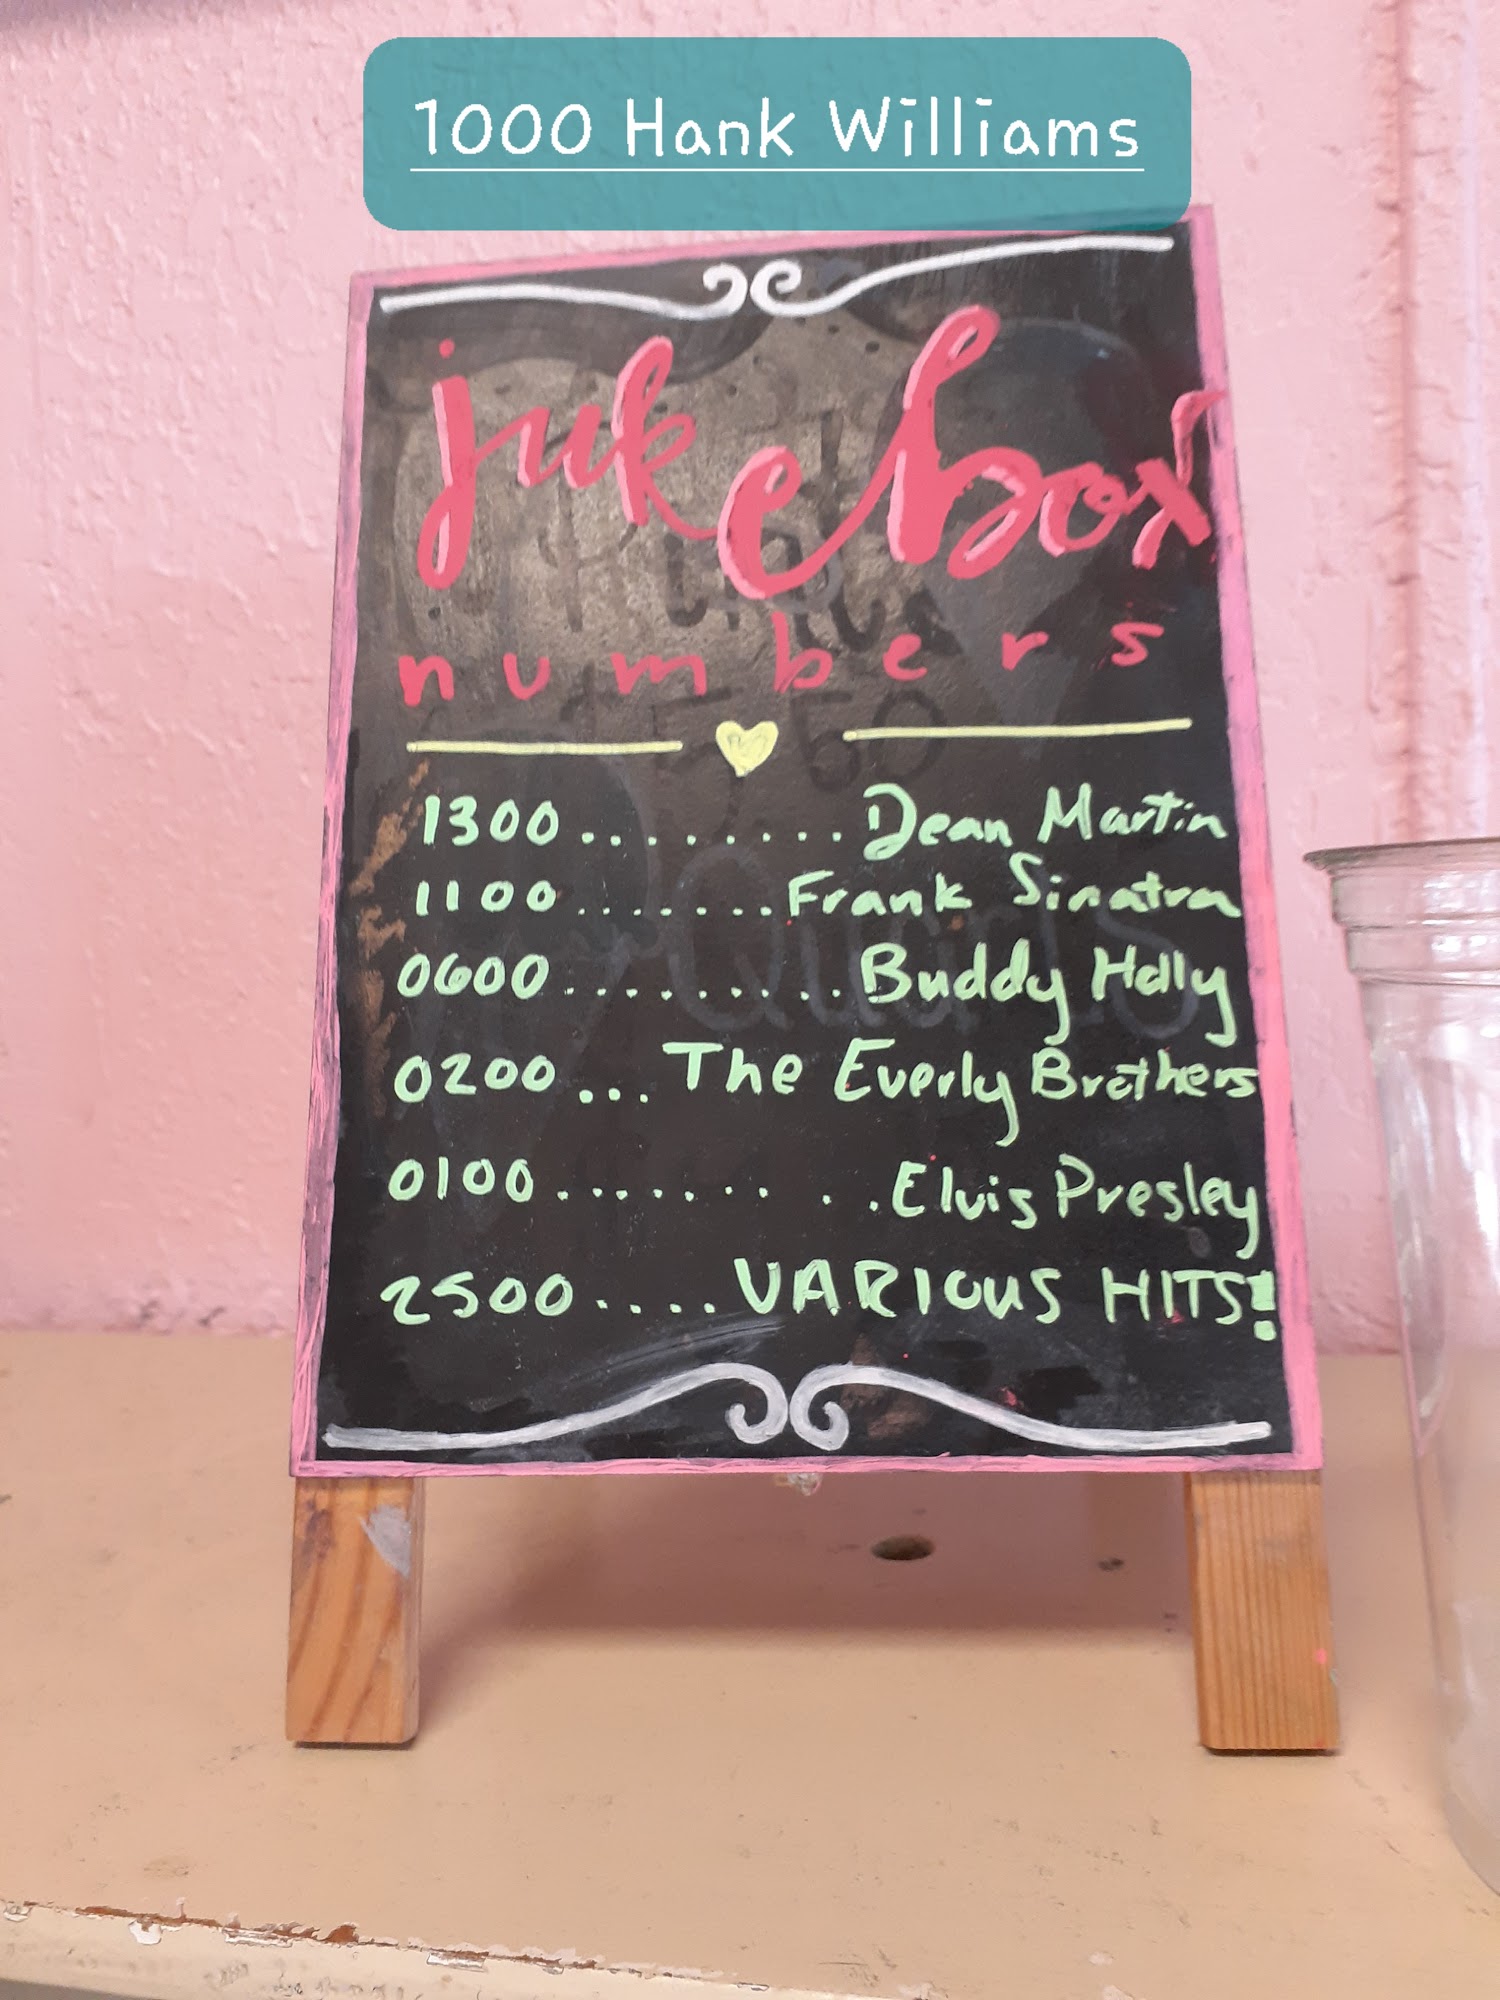 1000 Hank Williams
jukebox
numbers
1300.........Dean Martin
1100.......Frank Sinatra
0600.........Buddy Holly
0200...The Everly Brothers
0100....... ..Elvis Presley
2500....VARIOUS HITS!